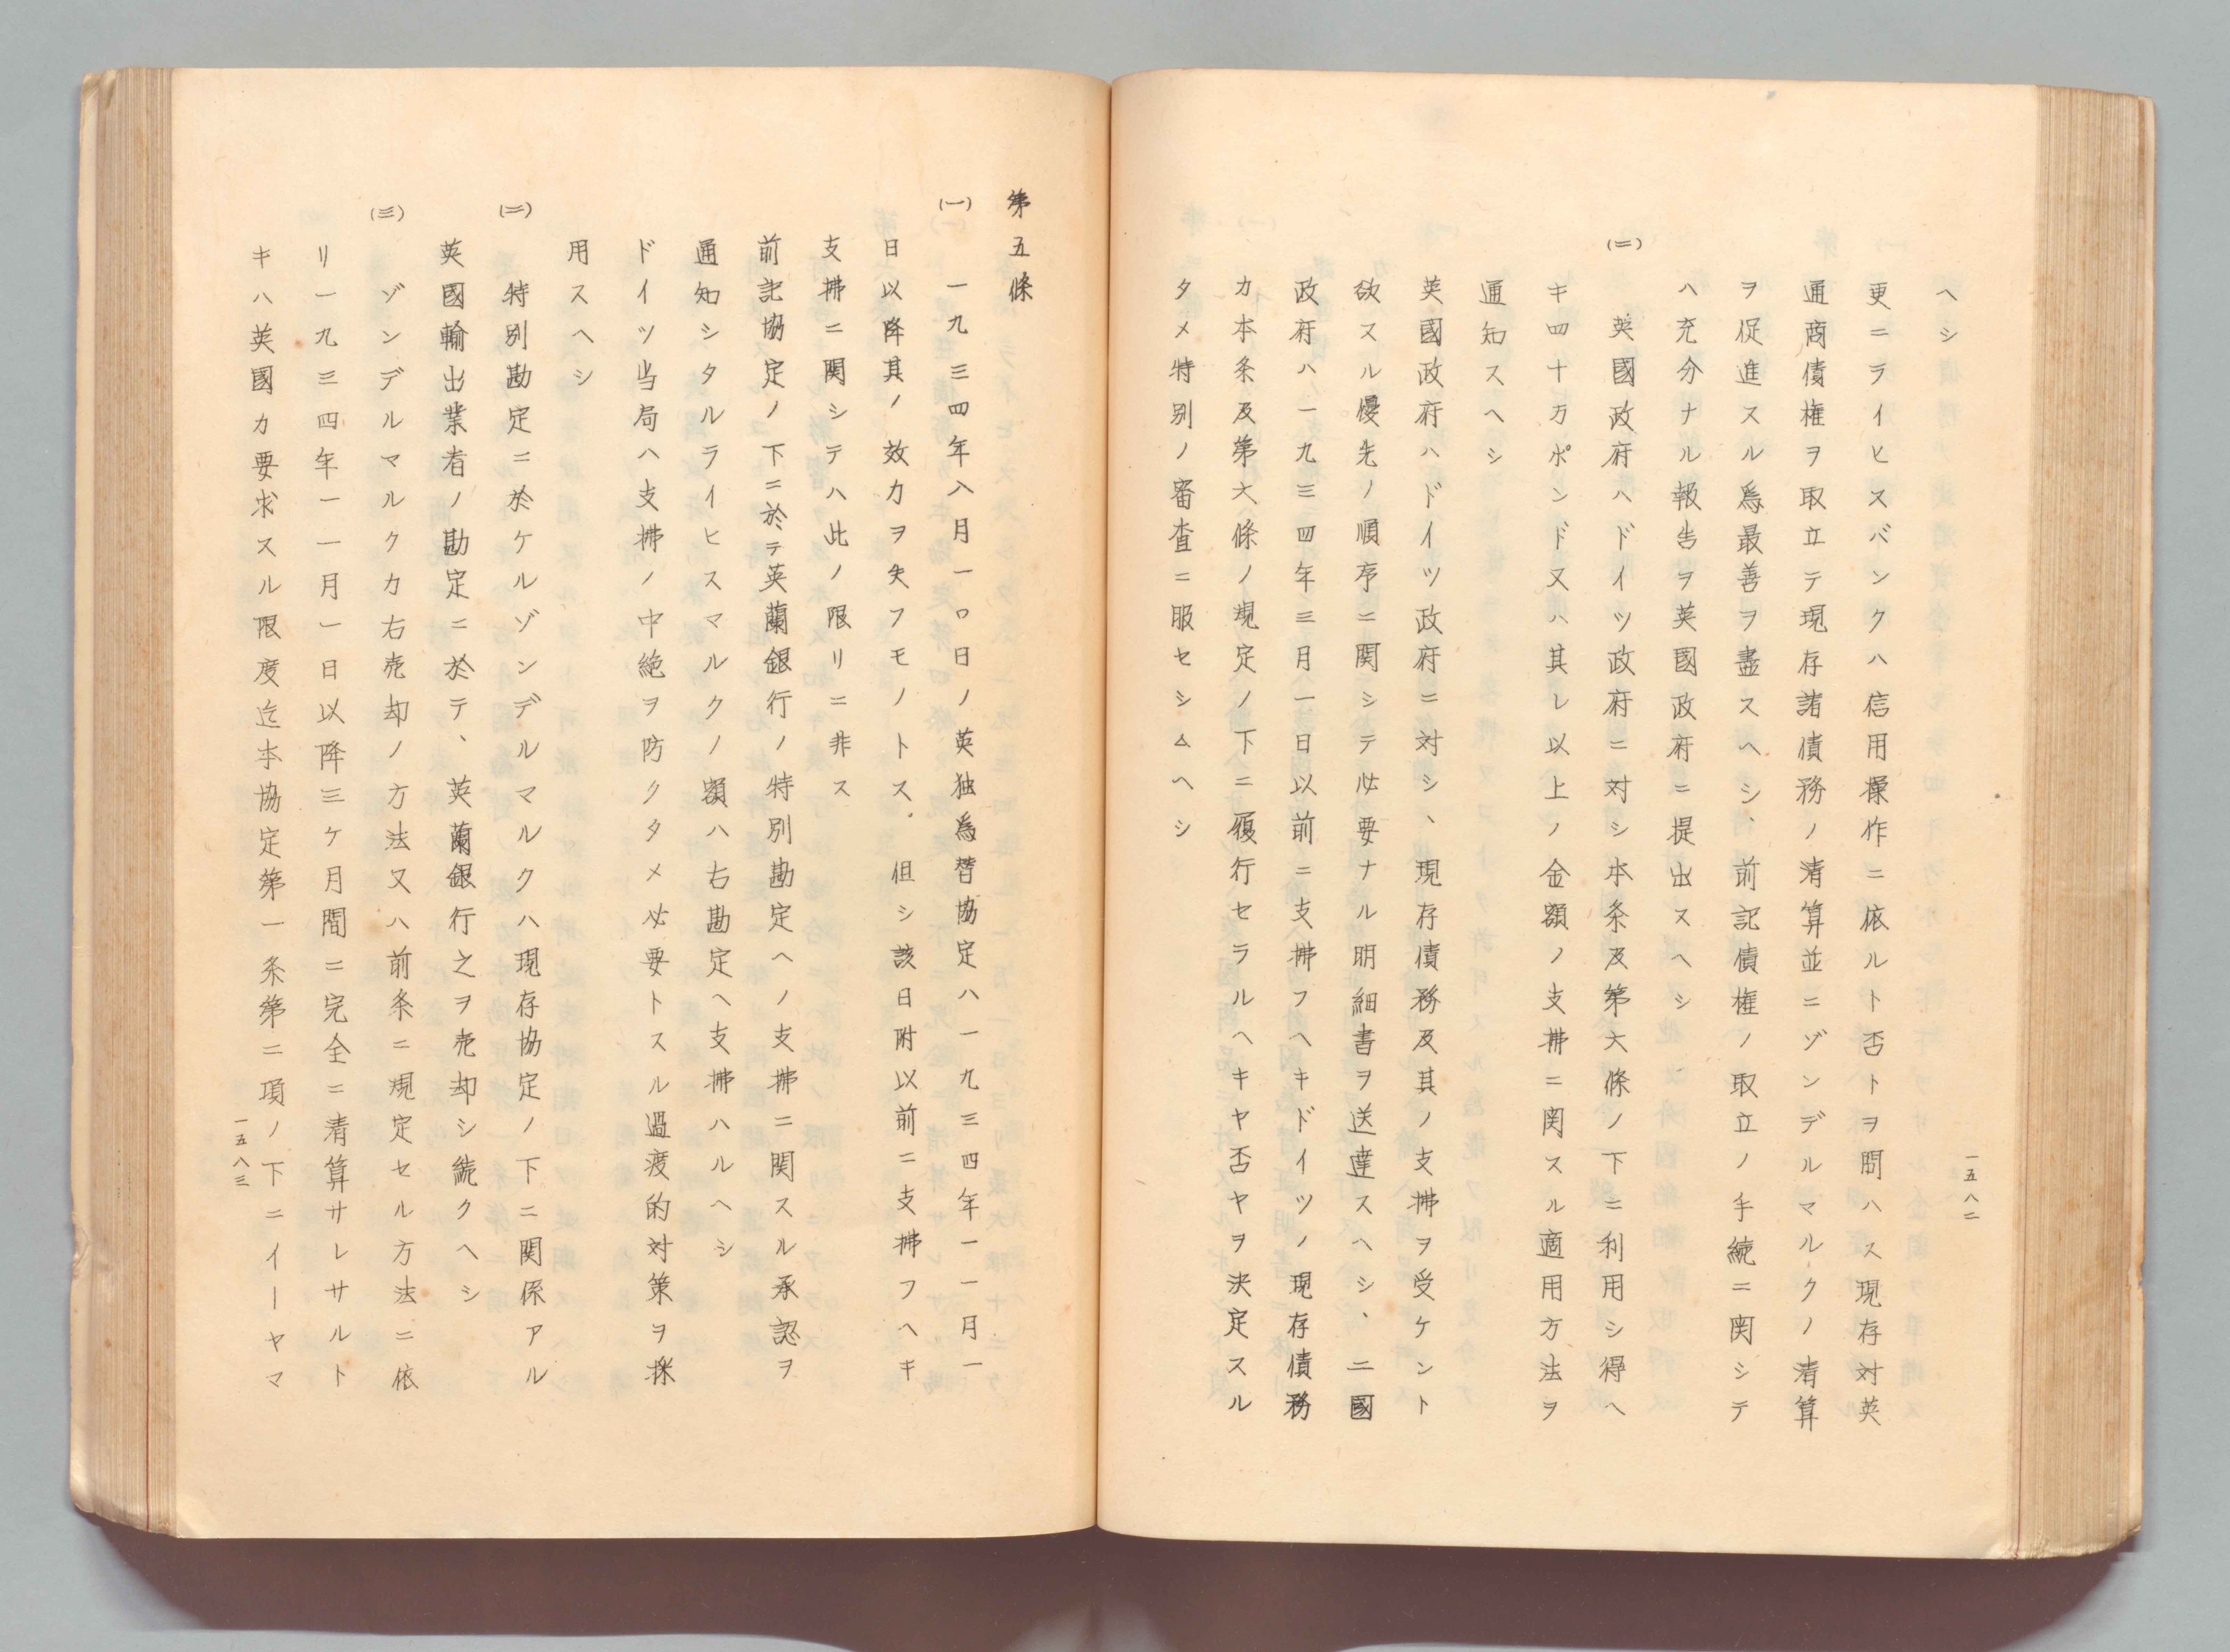 ヘシ
更ニライヒスバンクハ信用操作ニ依ルト否トヲ問ハス現存対英
通商債権ヲ取立テ現存諸債務ノ清算並ニゾンデルマルクノ清算
ヲ促進スル爲最善ヲ盡スヘシ、前記債権ノ取立ノ手続ニ関シテ
ハ充分ナル報告ヲ英國政府ニ提出スヘシ
(二)英國政府ハドイツ政府ニ対シ本条及第六條ノ下ニ利用シ得ヘ
キ四十万ポンド又ハ其レ以上ノ金額ノ支拂ニ関スル適用方法ヲ
通知スヘシ
英國政府ハドイツ政府ニ対シ、現存債務及其ノ支拂ヲ受ケント
欲スル優先ノ順序ニ関シテ必要ナル明細書ヲ送達スヘシ、二國
政府ハ一九三四年三月一日以前ニ支拂フヘキドイツノ現存債務
カ本条及第六條ノ規定ノ下ニ履行セラルヘキヤ否ヤヲ決定スル
タメ特別ノ審査ニ服セシムヘシ
一五八二
第五條
(一)一九三四年八月一〇日ノ英独爲替協定ハ一九三四年一一月一
日以降其ノ效力ヲ失フモノトス、但シ該日附以前ニ支拂フヘキ
支拂ニ関シテハ此ノ限リニ非ス
前記協定ノ下ニ於テ英蘭銀行ノ特別勘定ヘノ支拂ニ関スル承認ヲ
通知シタルライヒスマルクノ額ハ右勘定ヘ支拂ハルヘシ
ドイツ当局ハ支拂ノ中絶ヲ防クタメ必要トスル過渡的対策ヲ採
用スヘシ
(二)特別勘定ニ於ケルゾンデルマルクハ現存協定ノ下ニ関係アル
英國輸出業者ノ勘定ニ於テ、英蘭銀行之ヲ売却シ続クヘシ
(三)ゾンデルマルクカ右売却ノ方法又ハ前条ニ規定セル方法ニ依
リ一九三四年一一月一日以降三ケ月間ニ完全ニ清算サレサルト
キハ英國カ要求スル限度迄本協定第一条第二項ノ下ニイーヤマ
一五八三